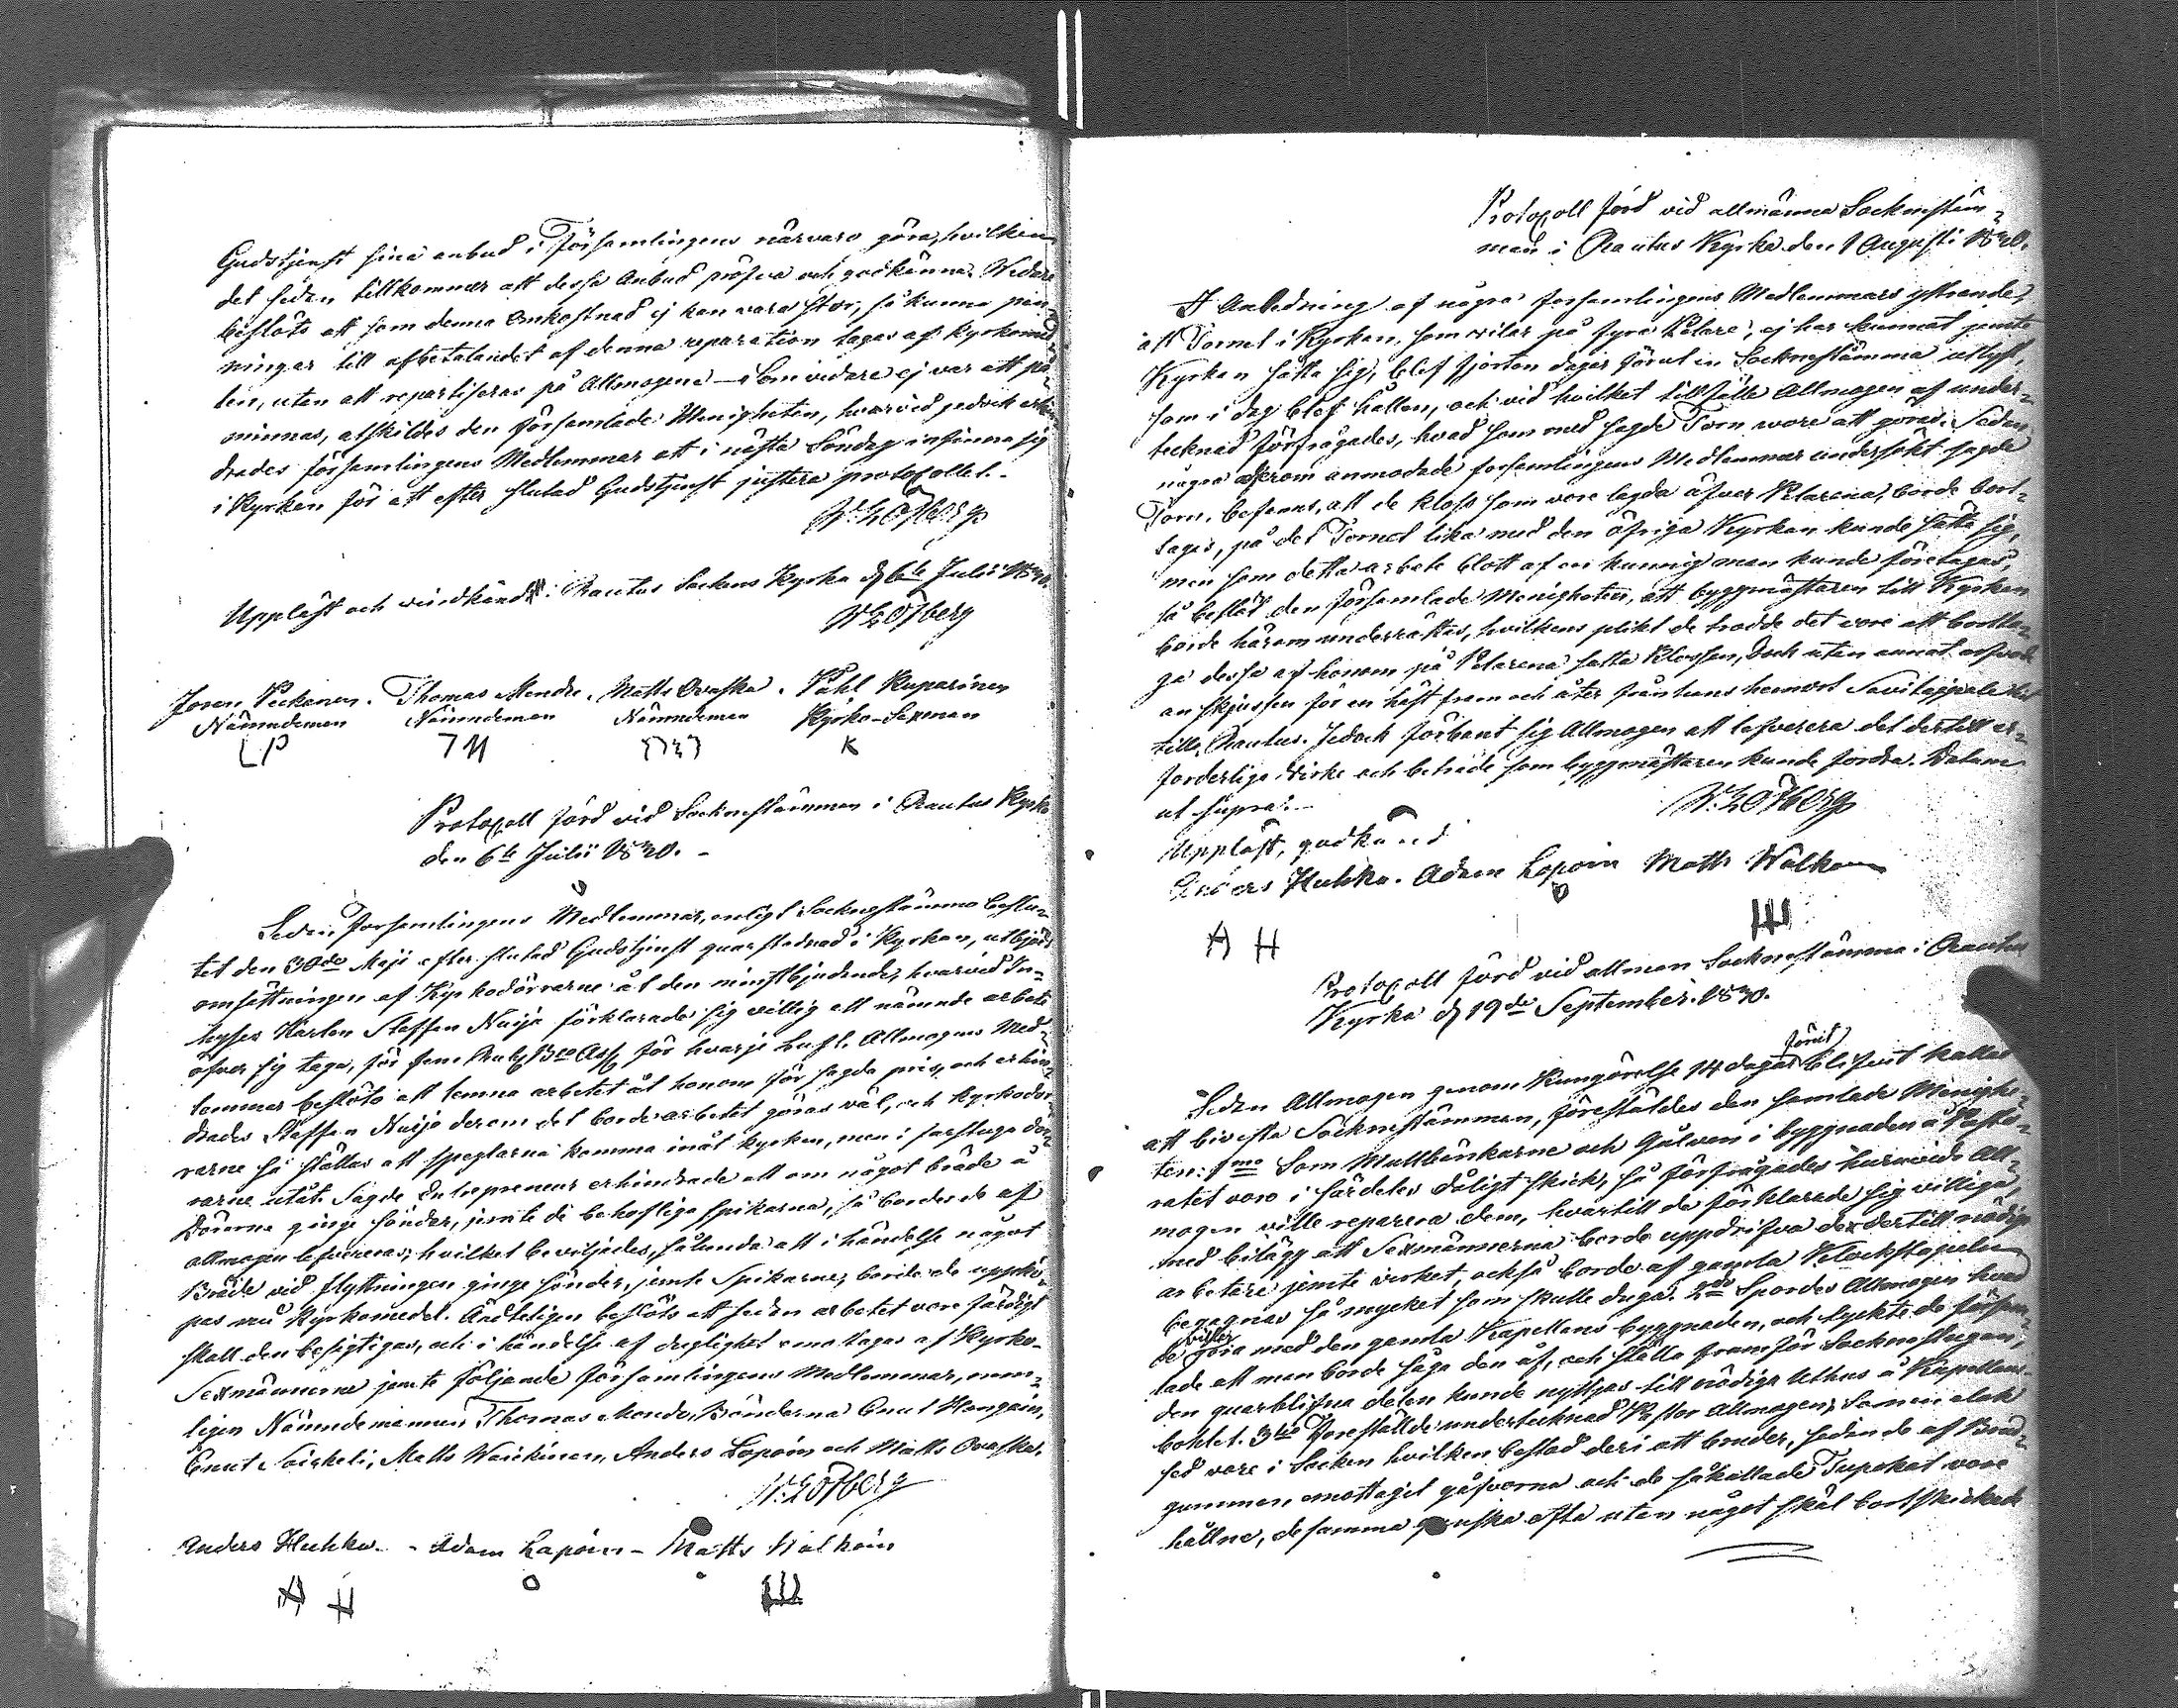 Gudstjenst sina anbud i Församlingens närvaro göra, hvilken
det sedan tillkommer att dessa Anbud pröfva och godkänna. Widare
beslöts att som denna Omkostnad ej kan vara stor, så kunna pen-
ningar till afbetalandet af denna reparation tagas af kyrkomed-
len, utan att repartiseras på Allmogene – Som vidare ej var att på-
minnas, åtskildes den församlade Menigheten, hvarvid jedoch erhin-
drades församlingens Medlemmar att i nästa Söndag infinna sig
i Kyrkan för att efter slutad Gudstjenst justera protocollet. –
Uppläst och vidkändt i Rautus Sockens Kyrka d 6te Julii 1830.
Thomas Mendre. Matts Ovaska. Påhl Kuparinen
Nämndeman Nämndeman Nämndeman Kyrko-Sexman
K
Protocoll förd vid Sockenstämman i Rautus Kyrka
den 6te Julii 1830. –
Sedan Församlingens Medlemmar, enligt Sockenstämmo beslu-
tet den 30de Maji efter slutad Gudstjenst quarstadnad i Kyrkan, utbjöds
omsättningen af Kyrkodörrarne åt den minstbjudende, hvarvid In-
hyses Karlen Staffan Naija förklarade sig villig att nämnde arbete
öfver sig taga, för fem Rub för hvarje Allmogens Med-
lemmar beslöto att lemna arbetet åt honom för sagde pris, och erhin-
drades Staffan Naija derom det borde arbetet göras väl, och Kyrkodör-
rarne så ställas att speglarna komma inåt kyrkan, men i farstuga dör-
rarne utåt. Sagde Entrepreneur erhindrade att om något bräde å
Dörrarne ginge sönder, jemte de behöfliga spikarna, så borde de af
allmogen lefvereras; hvilket beviljades, sålunda att i händelse något
Bräde vid flyttningen ginge sönder, jemte Spikarne, borde de uppkö-
pas med Kyrkomedel. Ändteligen beslöts att sedan arbetet vore färdigt
skall den besigtigas, och i händelse af dugligket emottagas af Kyrko-
Sexmännerne jemte följande församlingens Medlemmar, nem-
ligen Nämndemannen Thomas Mendre, Bönderna Cnut Hangain,
Cnut Matts Anders Lapoin och Matts Ovaska.
Anders Hukka. – Adam Lapoin – Matts
A H
Protocoll förd vid allmänna Sockenstäm-
man i Rautus Kyrka den 1 Augusti 1830.
I Anledning af några församlingens Medlemmars yttrande,
att Tornet i Kyrkan, som vilar på fyra Pelare, ej har kunnat jemte
Kyrkan sätta sig, blef fjorton dagar förut en Sockenstämma utlyst,
som i dag blef hållen, och vid hvilket tillfälle Allmogen af under-
tecknad förfrågades, hvad som med sagde Torn vore att göra. Sedan
några derom anmodade församlingens Medlemmar undersökt sagde
Torn, befanns, att de kloss som vore lagda öfver Pelarena, borde bort-
tagas, på det Tornet lika med den öfriga Kyrkan kunde sätta sig,
men som detta arbete blott af en kunnig man kunde företagas,
så beslöt den församlade Menigheten, att byggmästaren till Kyrkan
borde härom underrättas, hvilkens plikt de trodde det vore att bortta-
ga dessa af honom på Pelarena satta Klossen, doch utan annat
än skjutsen för en häst fram och åter från hans hemort Savitaipale
till Rautus. Jedoch förbant sig Allmogen att lefverera det dertill er-
forderliga virke och beträde som byggmästaren kunde fordra. Datum
ut supra. –
Uppläst, godkänd
Anders Hukka. Adam Lapoin Matts
A H
Protocoll förd vid allmän Sockenstämma i Rautus
Kyrka d 19de September 1830.
förut
Sedan Allmogen genom Kungörelse 14 dagar blifvit kallad
att bivista Sockenstämman, föreställdes den samlade Menighe-
ten: 1mo Som Mullbänkarne och Gålven i byggnaden å Pasto-
ratet voro i särdeles dåligt skick, så förfrågades huruvida All-
mogen ville reparera dem, hvartill de förklarade sig villiga,
med tilägg att Sexmännerna borde uppdrifva de dertill nödige
arbetare jemte virket, också borde af gamla Klockstapeln
begagnas så mycket som skulle duga. 2do Spordes Allmogen hvad
de göra med den gamla Kapellans byggnaden, och tyckte de försam-
lade att man borde såga den af, och ställa framför Sockenstugan,
den quarblifna delen kunde nyttjas till nödiga Uthus å Kapellans
bohlet. 3tio Föreställde undertecknad Pastor Allmogen, som en elak
sed vore i Socken hvilken bestod deri att bruder, sedan de af Brud-
gummen, emottagit gåfvorna och de såkallade Tupakat vore
hållne, desamma ganska ofta utan något skäl bortskickade